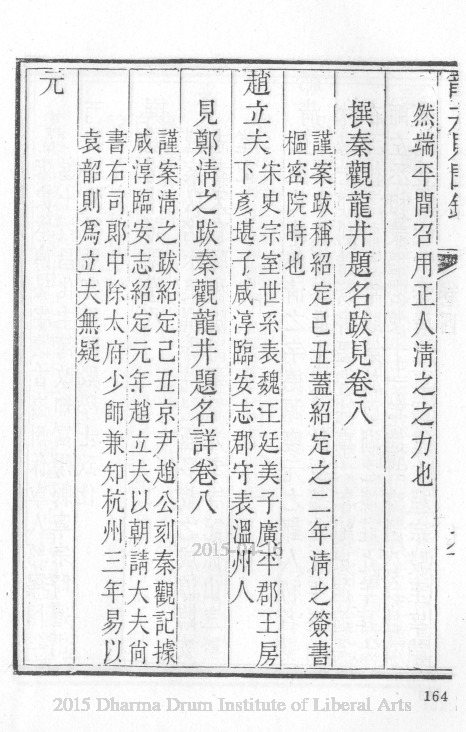 然端平間召用正人淸之之力也
撰秦觀龍井題名跋見卷八
謹案跋稱紹定己丑蓋紹定之二年淸之簽書
樞密院時也
趙立夫宋史宗室世系表魏王廷美子廣平郡王房
下彥堪子咸淳臨安志郡守表溫州人
見鄭淸之跋秦觀龍井題名詳卷八
謹案淸之跋紹定己丑京尹趙公刻秦觀記據
咸淳臨安志紹定元年趙立夫以朝請大夫尙
書右司郞中除太府少師兼知杭州三年易以
袁韶則爲立夫無疑
元
164
2015 Dharma Drum Institute of Liberal Arts